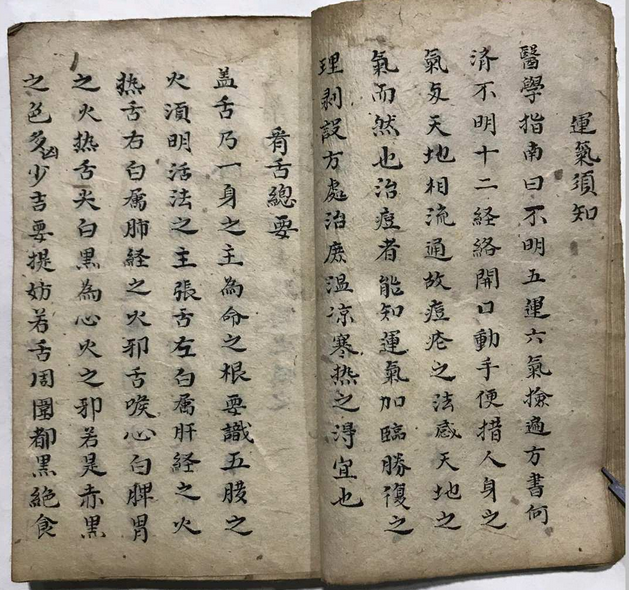 運氣須知
醫學指南曰不明五運六氣撿遍方書何
済不明十二経絡開口動手便措人身之
氣与天地相流通故痘疮之法感天地之
氣而然也治痘者能知運氣加臨勝復之
理剥設方處治庶温凉寒热之淂宜也
看舌總要
盖舌乃一身之主為命之根要識五臓之
火湏明活法之主張舌左白属肝経之火
热舌右白属肺経之火邪舌喉心白脾胃
之火热舌尖白黒為心火之邪若是赤黒
之色多凶少吉要提妨若舌周圍都黒絶食